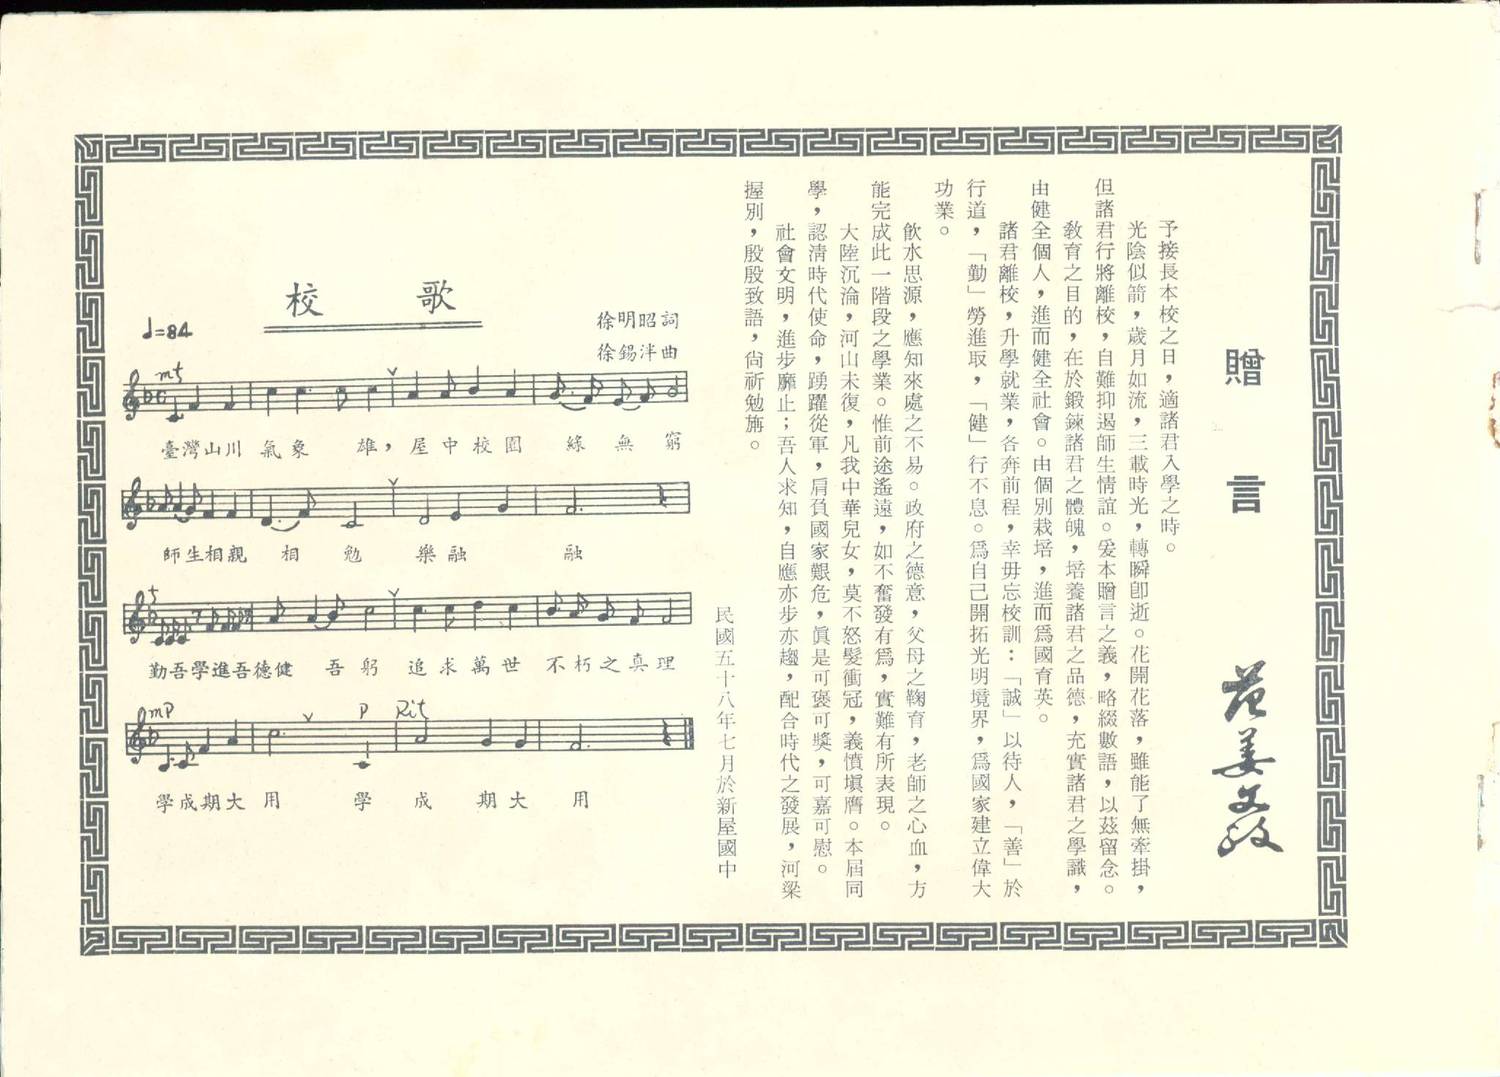 贈言
范姜文
予接長本校之日，適諸君入學之時。
光陰似箭，歲月如流，三載時光，轉瞬卽逝。花開花落，雖能了無牽掛，
但諸君行將離校，自難抑遏師生情誼。爰本贈言之義，略綴數語，以茲留念。
敎育之目的，在於鍛鍊諸君之體魄，培養諸君之品德，充實諸君之學識，
由健全個人，進而健全社會。由個別栽培，進而爲國育英。
諸君離校，升學就業，各奔前程，幸毋忘校訓：「誠」以待人，「善」於
行道，「勤」勞進取，「健」行不息。爲自己開拓光明境界，爲國家建立偉大
功業。
飮水思源，應知來處之不易。政府之德意，父母之鞠育，老師之心血，方
能完成此一階段之學業。惟前途遙遠，如不奮發有爲，實難有所表現。
大陸沉淪，河山未復，凡我中華兒女，莫不怒髮衝冠，義憤塡膺。本屆同
學，認淸時代使命，踴躍從軍，肩負國家艱危，眞是可褒可獎，可嘉可慰。
社會文明，進步靡止；吾人求知，自應亦步亦趨，配合時代之發展，河梁
握別，殷殷致語，尙祈勉旃。
民國五十八年七月於新屋國中
校歌
♩=84
徐明昭詞
徐錫泮曲
mf
臺灣山川氣象雄，屋中校園綠無窮
師生相親相勉樂融融
f
勤吾學進吾德健吾躬追求萬世不朽之真理
mp p Rit
學成期大用學成期大用